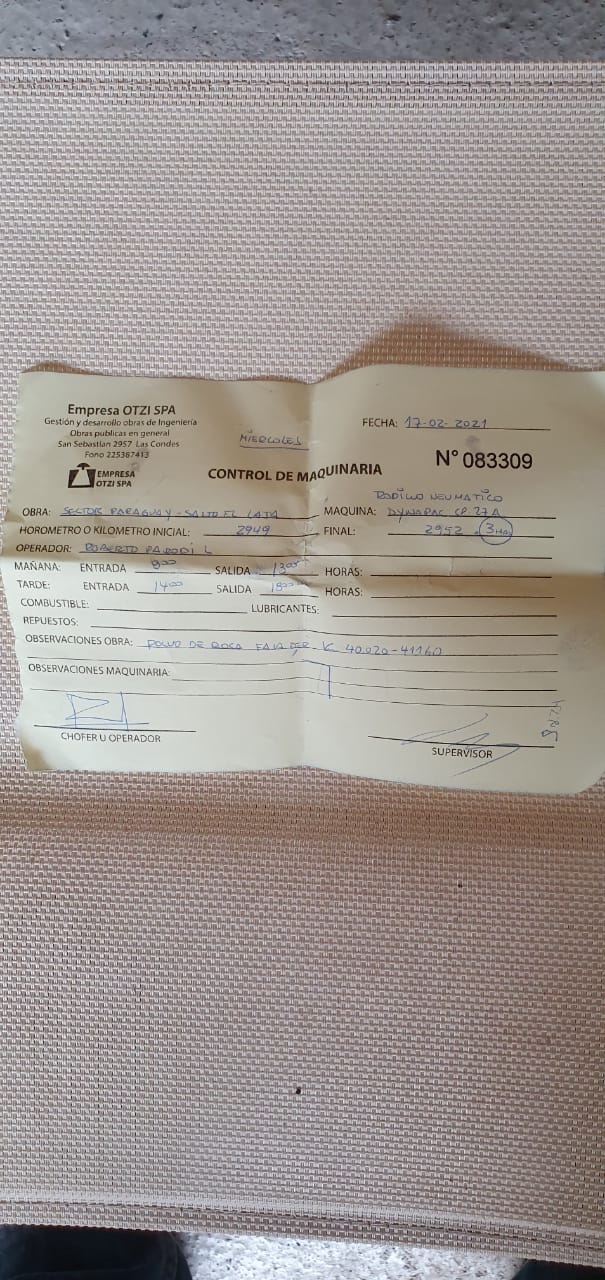 Empresa OTZI SPA
Gestión y desarrollo obras de Ingeniería
Obras publicas en general
San Sebastian 2957 Las Condes
Fono 225387413
EMPRESA
OTZI SPA
MIERCOLES
FECHA: 17-02-2021
CONTROL DE MAQUINARIA
N° 083309
RODILLO NEUMATICO
OBRA: SECTOR PARAGUAY - SALTO EL LAJA MAQUINA: DYNAPAC CP. 27A
HOROMETRO O KILOMETRO INICIAL: 2949 FINAL: 2952 3 HRS
OPERADOR: ROBERTO PARODI L
MAÑANA: ENTRADA 8:00 SALIDA 13:00 HORAS:
TARDE: ENTRADA 14:00 SALIDA 18:00 HORAS:
COMBUSTIBLE: LUBRICANTES:
REPUESTOS:
OBSERVACIONES OBRA: POLVO DE ROCA K 40.020-41160
OBSERVACIONES MAQUINARIA:
CHOFER U OPERADOR
SUPERVISOR